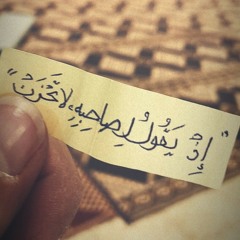 "إِذْ يَقُولُ لِصَاحِبِهِ لَا تَحْزَنْ"